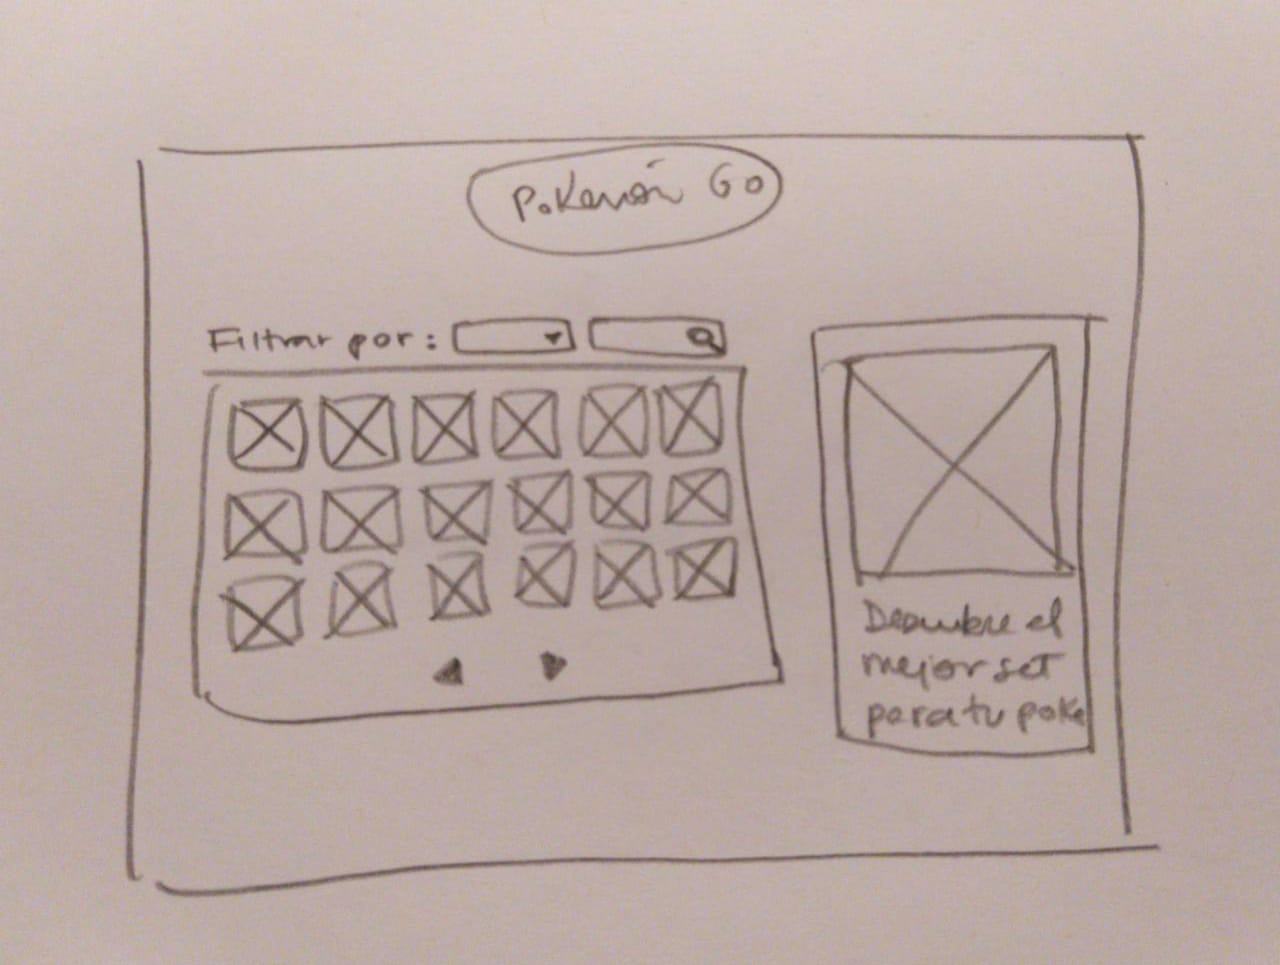 Pokémon Go
Filtrar por:
Descubre el
mejor set
para tu poke